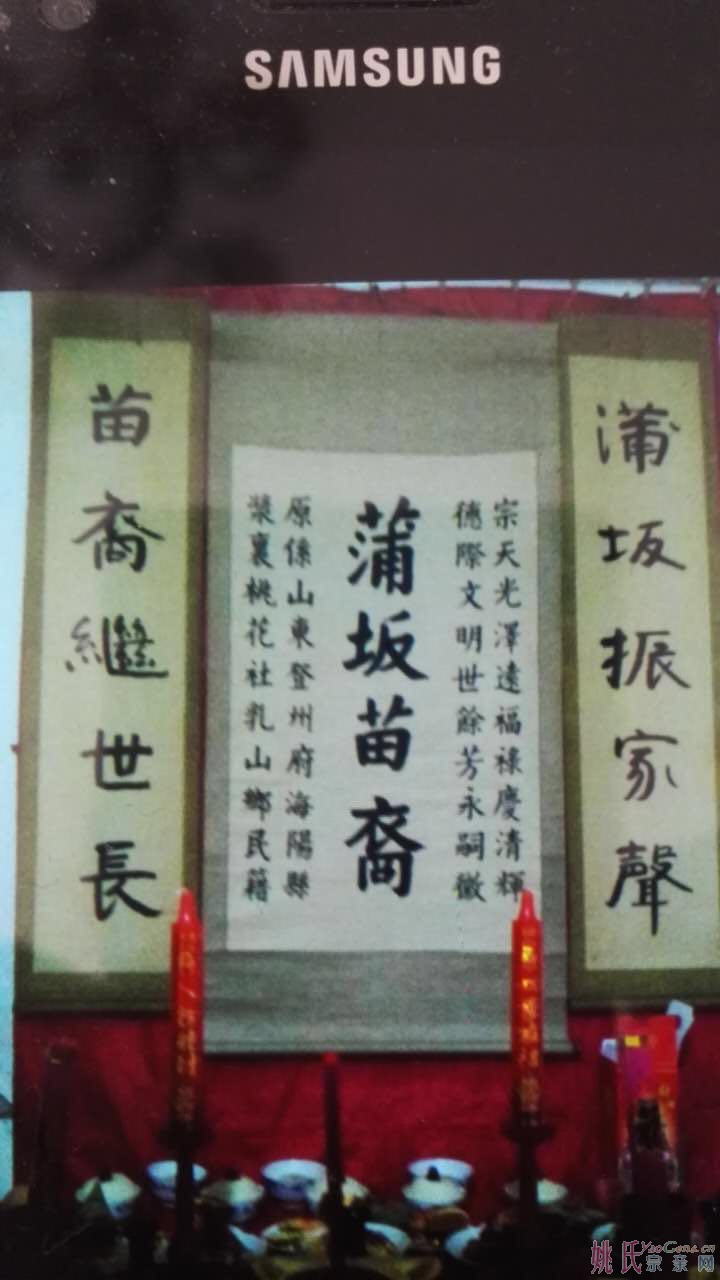 SAMSUNG
蒲坂振家聲
宗天光澤遠福祿慶清輝
德際文明世餘芳永嗣徽
蒲坂苗裔
原係山東登州府海陽縣
漿裏桃花社乳山鄉民籍
苗裔繼世長
姚氏宗亲网